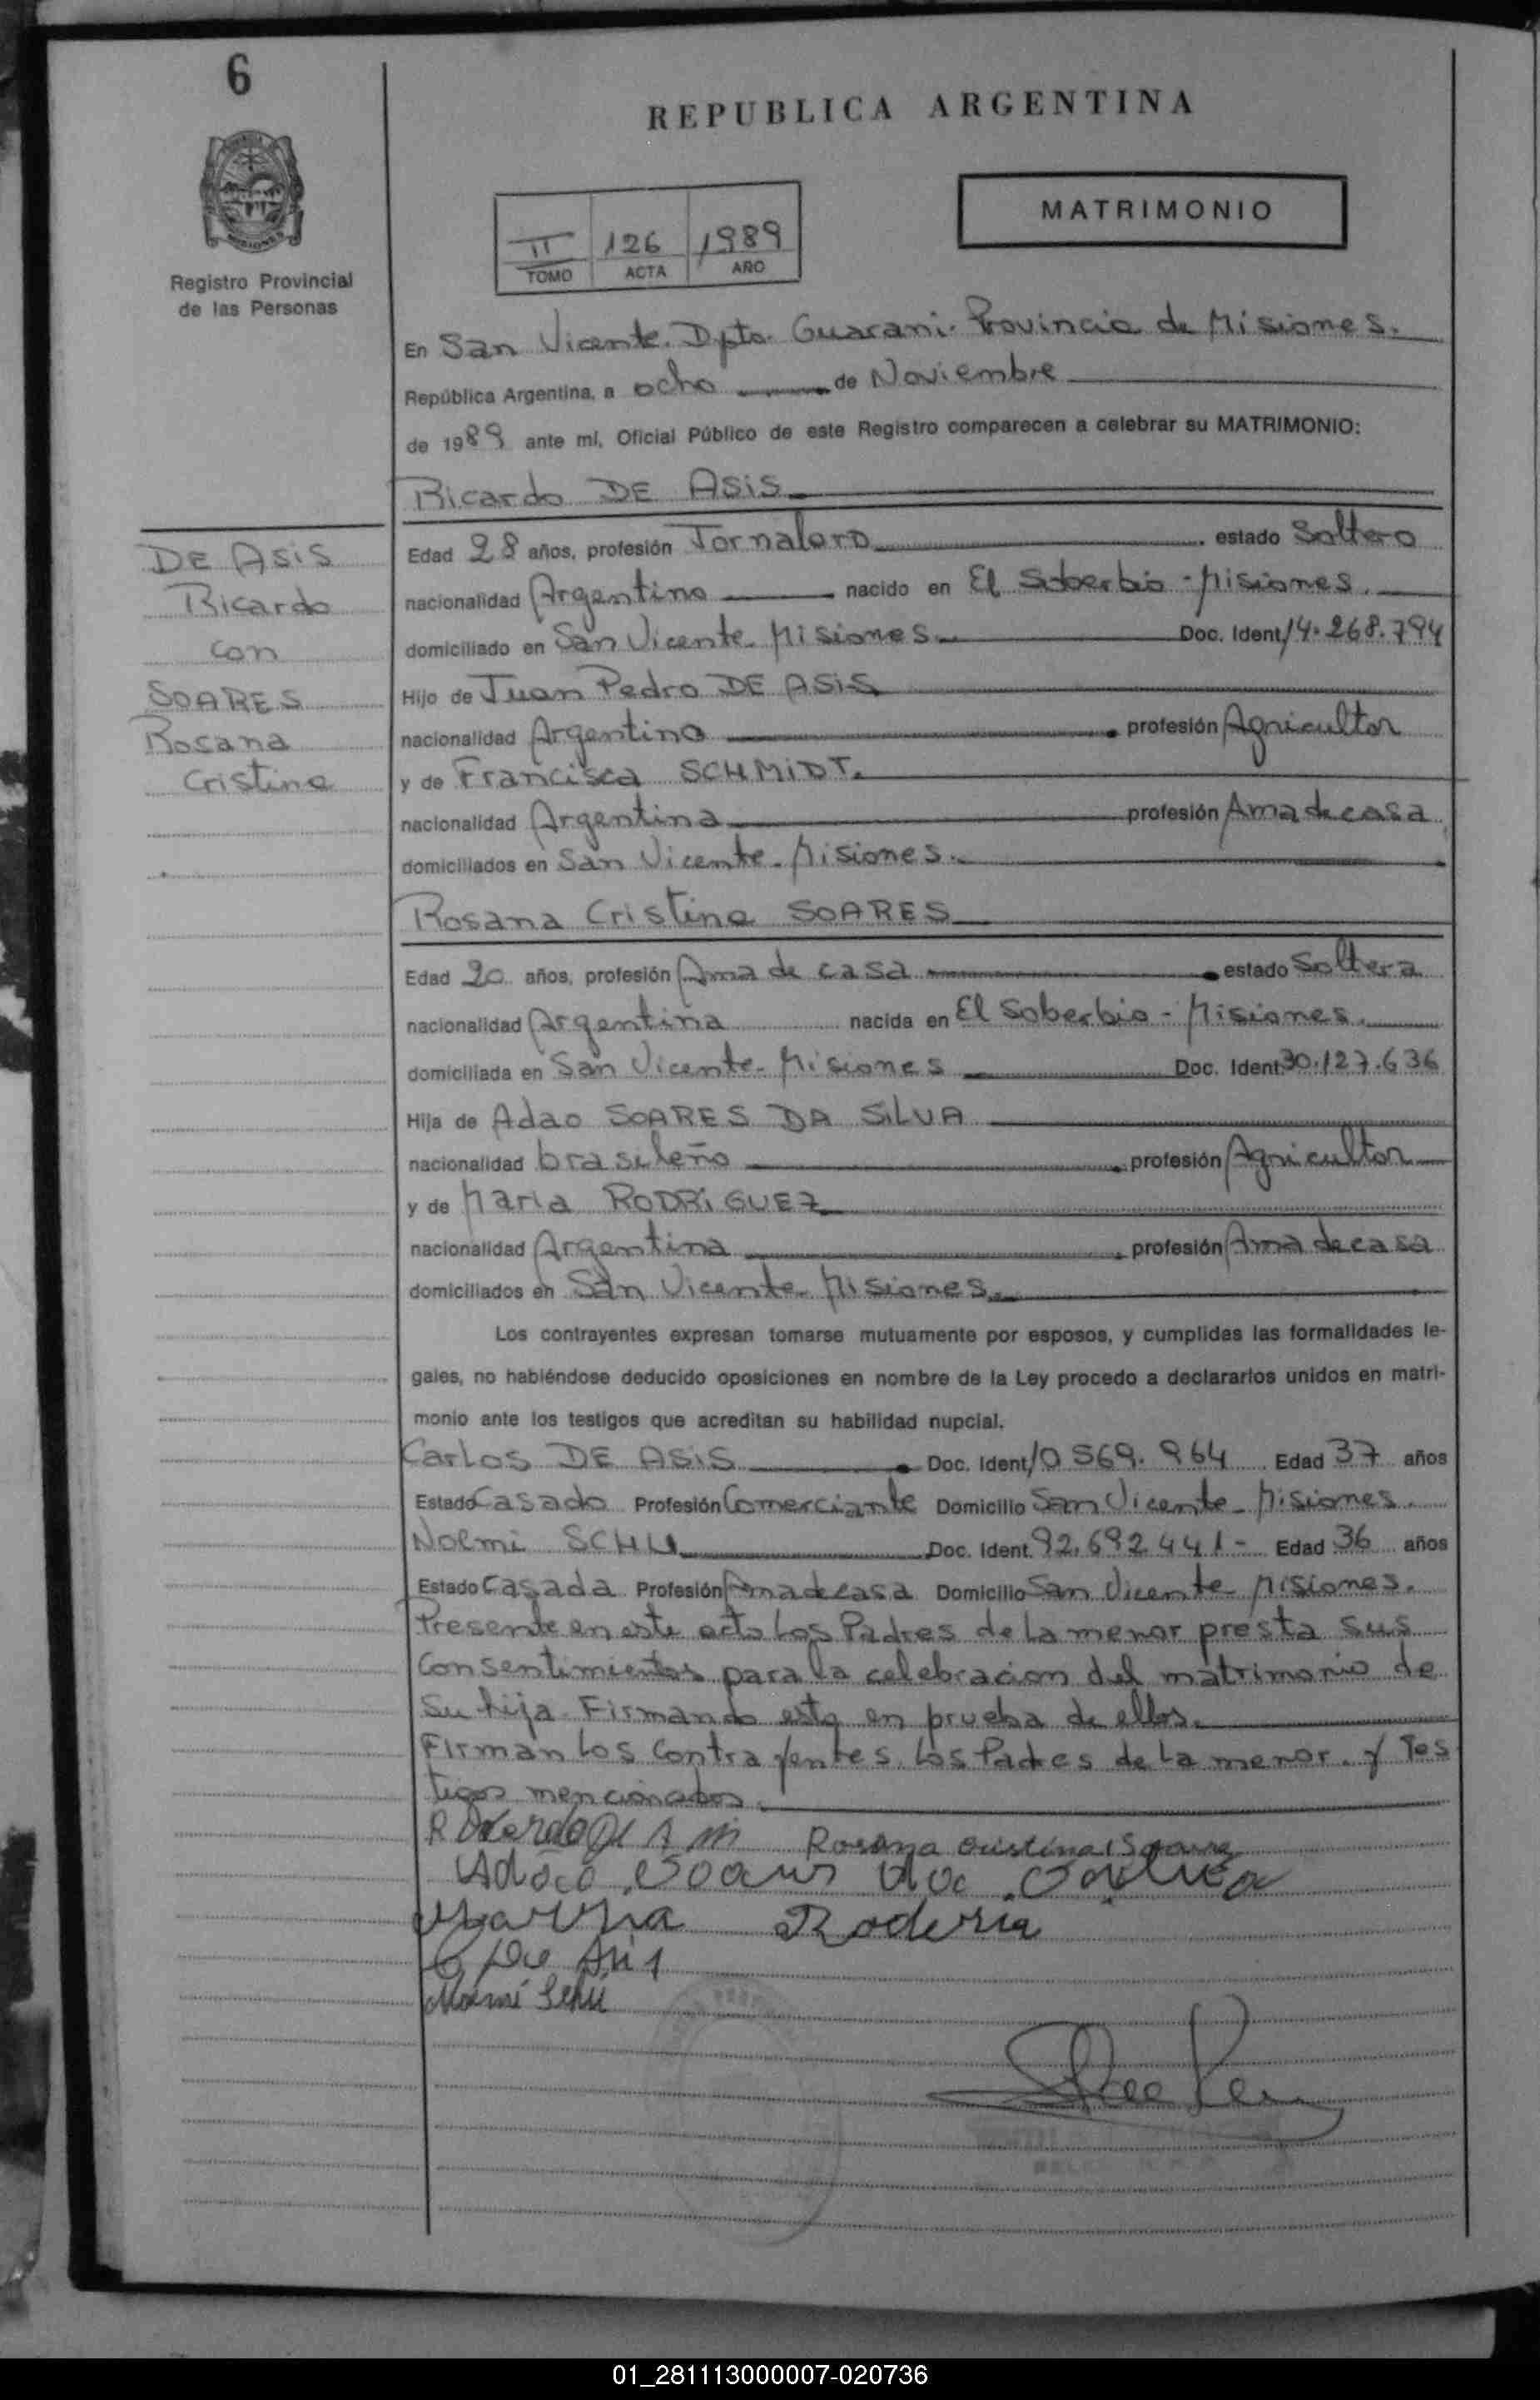 6
REPUBLICA ARGENTINA
MATRIMONIO
II 126 1989
TOMO ACTA AÑO
Registro Provincial
de las Personas
En San Vicente. Dpto. Guarani. Provincia de Misiones.
República Argentina, a ocho de Noviembre
de 1989 ante mí, Oficial Público de este Registro comparecen a celebrar su MATRIMONIO:
Ricardo DE ASiS
DE ASiS
Ricardo
con
SOARES
Rosana
Cristina
Edad 28 años, profesión Jornalero estado Soltero
nacionalidad Argentino nacido en El Soberbio - Misiones.
domiciliado en San Vicente - Misiones Doc. Ident. 14.268.794
Hijo de Juan Pedro DE ASiS
nacionalidad Argentino profesión Agricultor
y de Francisca SCHMiDT.
nacionalidad Argentina profesión Ama de casa
domiciliados en San Vicente - Misiones.
Rosana Cristina SOARES
Edad 20 años, profesión Ama de casa estado Soltera
nacionalidad Argentina nacida en El Soberbio - Misiones.
domiciliada en San Vicente - Misiones Doc. Ident. 30.127.636
Hija de Adao SOARES DA SiLVA
nacionalidad brasileño profesión Agricultor
y de Maria RODRiGUEZ
nacionalidad Argentina profesión Ama de casa
domiciliados en San Vicente - Misiones.
Los contrayentes expresan tomarse mutuamente por esposos, y cumplidas las formalidades le-
gales, no habiéndose deducido oposiciones en nombre de la Ley procedo a declararlos unidos en matri-
monio ante los testigos que acreditan su habilidad nupcial.
Carlos DE ASiS Doc. Ident. 10 569.964 Edad 37 años
Estado Casado Profesión Comerciante Domicilio San Vicente - Misiones.
Noemi SCHU Doc. Ident. 92.692 441 - Edad 36 años
Estado Casada Profesión Ama de casa Domicilio San Vicente - Misiones.
Presente en este acto Los Padres de la menor presta sus
Consentimientos para la celebracion del matrimonio de
su hija. Firmando esta en prueba de ellos.
Firman Los Contrayentes. Los Padres de La menor. y Tes
tigos mencionados.
Rosana cristina Soares
C De Asis
Noemi Schu
01_281113000007-020736